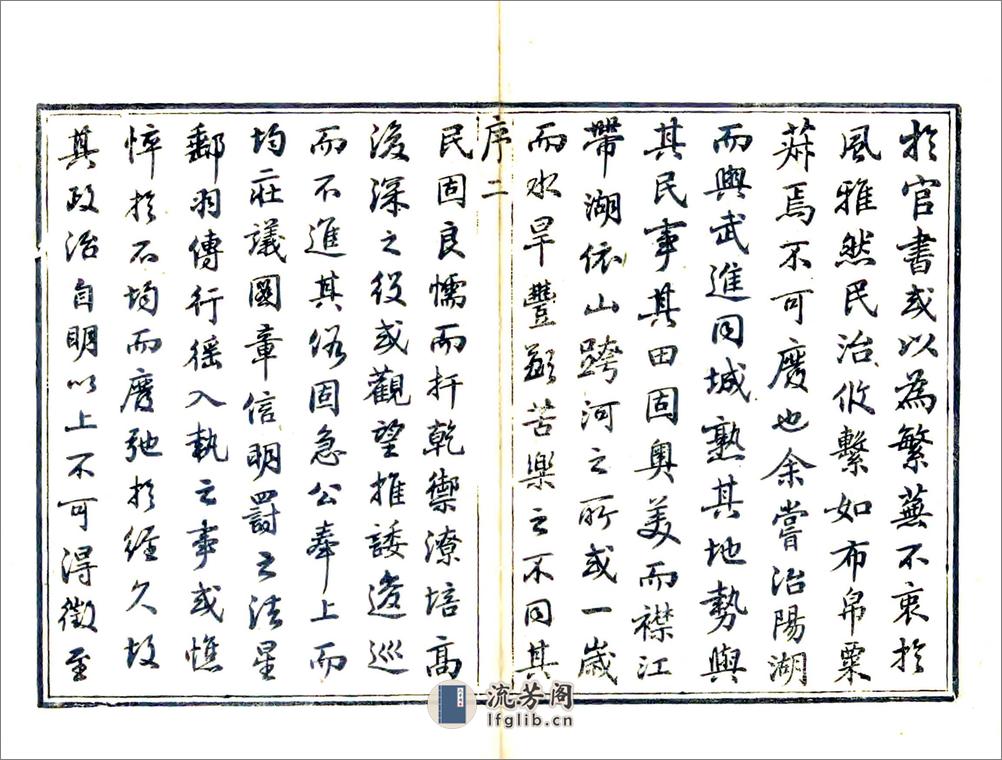 於官書或以為繁蕪不衷於
風雅然民治攸繫如布帛粟
菽焉不可廢也余嘗治陽湖
而與武進同城熟其地勢與
其民事其田固奧美而襟江
帶湖依山跨河之所或一歲
而水旱豐歉苦樂之不同其
序二
民固良懦而扞乾禦潦培高
浚深之役或觀望推諉逡巡
而不進其俗固急公奉上而
均莊議圖章信明罰之法星
郵羽傳行徭入執之事或憔
悴於不均而廢弛於經久故
其政治自明以上不可得徵至
流芳阁
lfglib.cn